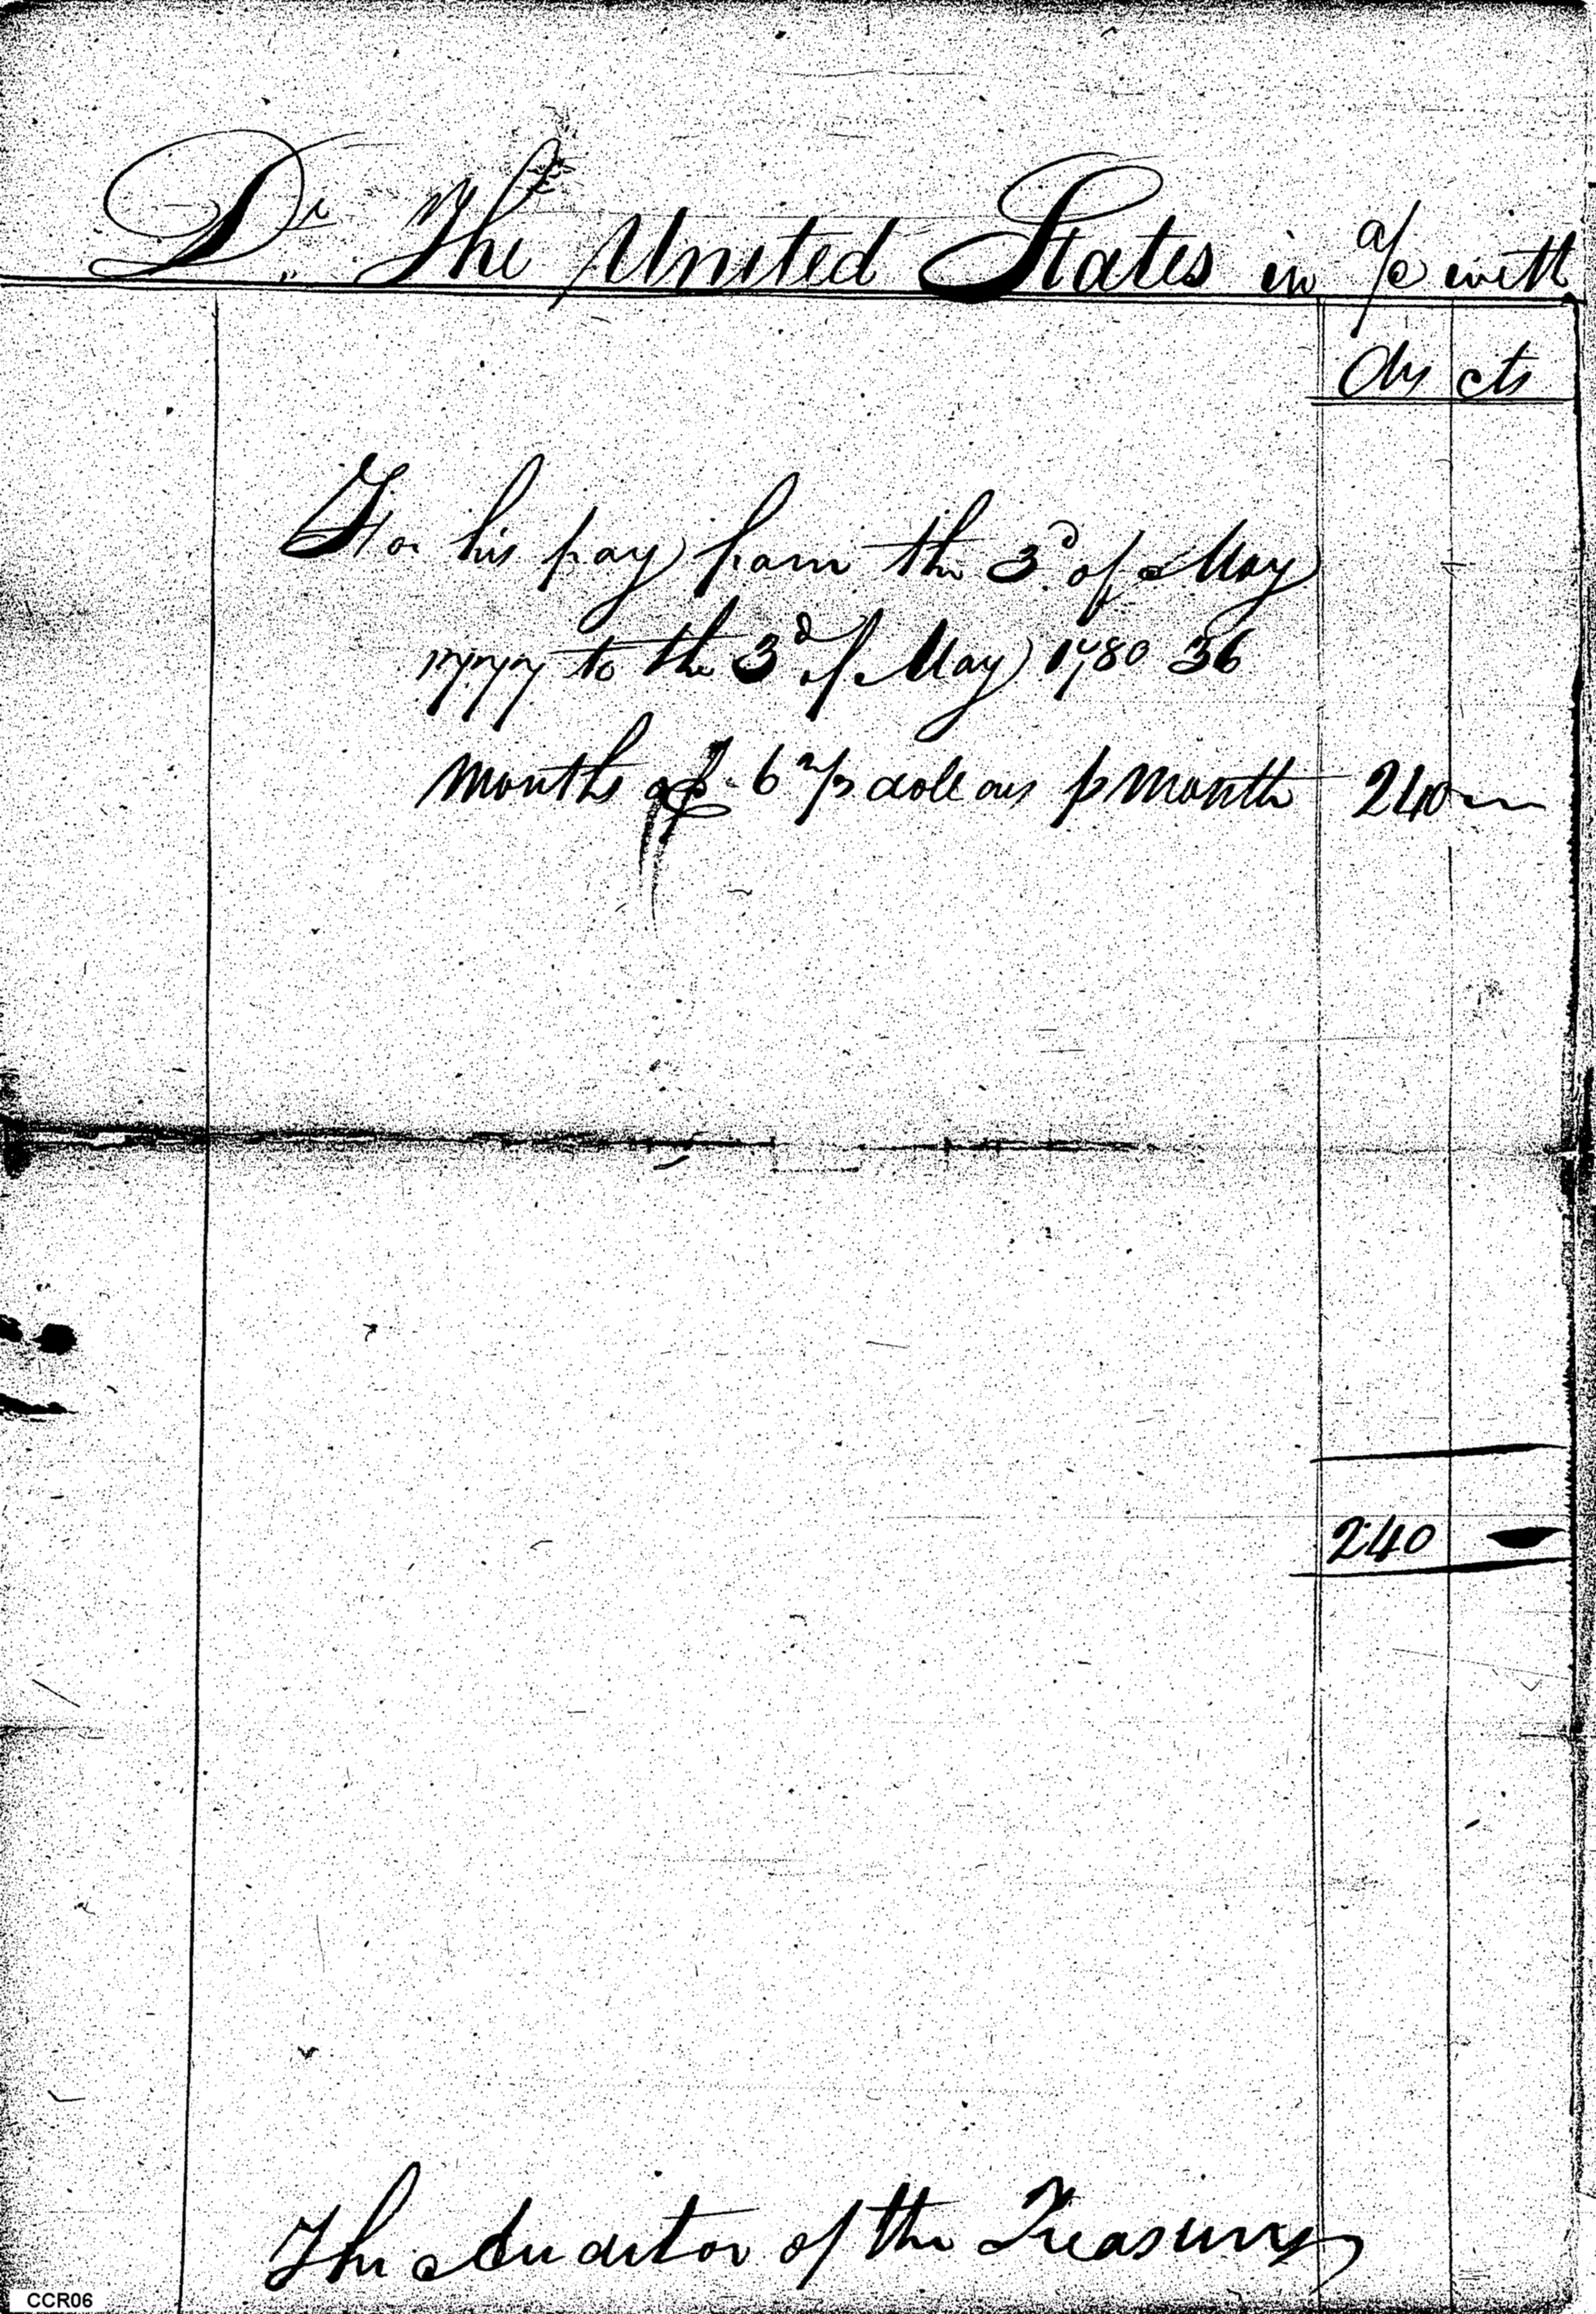 Dr. The United States in a/c with
Dlrs cts
For his pay from the 3d. of May
1777 to the 3d of May 1780 36
months @ 6 2/3 dollars p month 240
240 -
The Auditor of the Treasury
CCR06